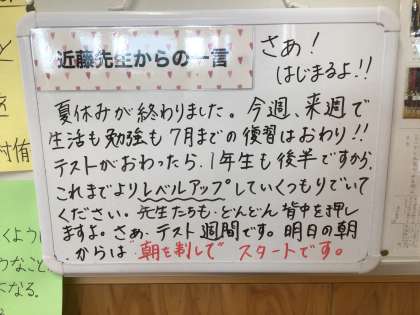 近藤先生からの一言
さぁ!
はじまるよ!!
夏休みが終わりました。今週、来週で
生活も勉強も7月までの復習はおわり!!
テストがおわったら、1年生も後半ですから、
これまでよりレベルアップしていくつもりでいて
ください。先生たちも、どんどん背中を押し
ますよ。さぁ、テスト週間です。明日の朝
からは"朝を制して"スタートです。
村侑
くように
うなこと
になる。